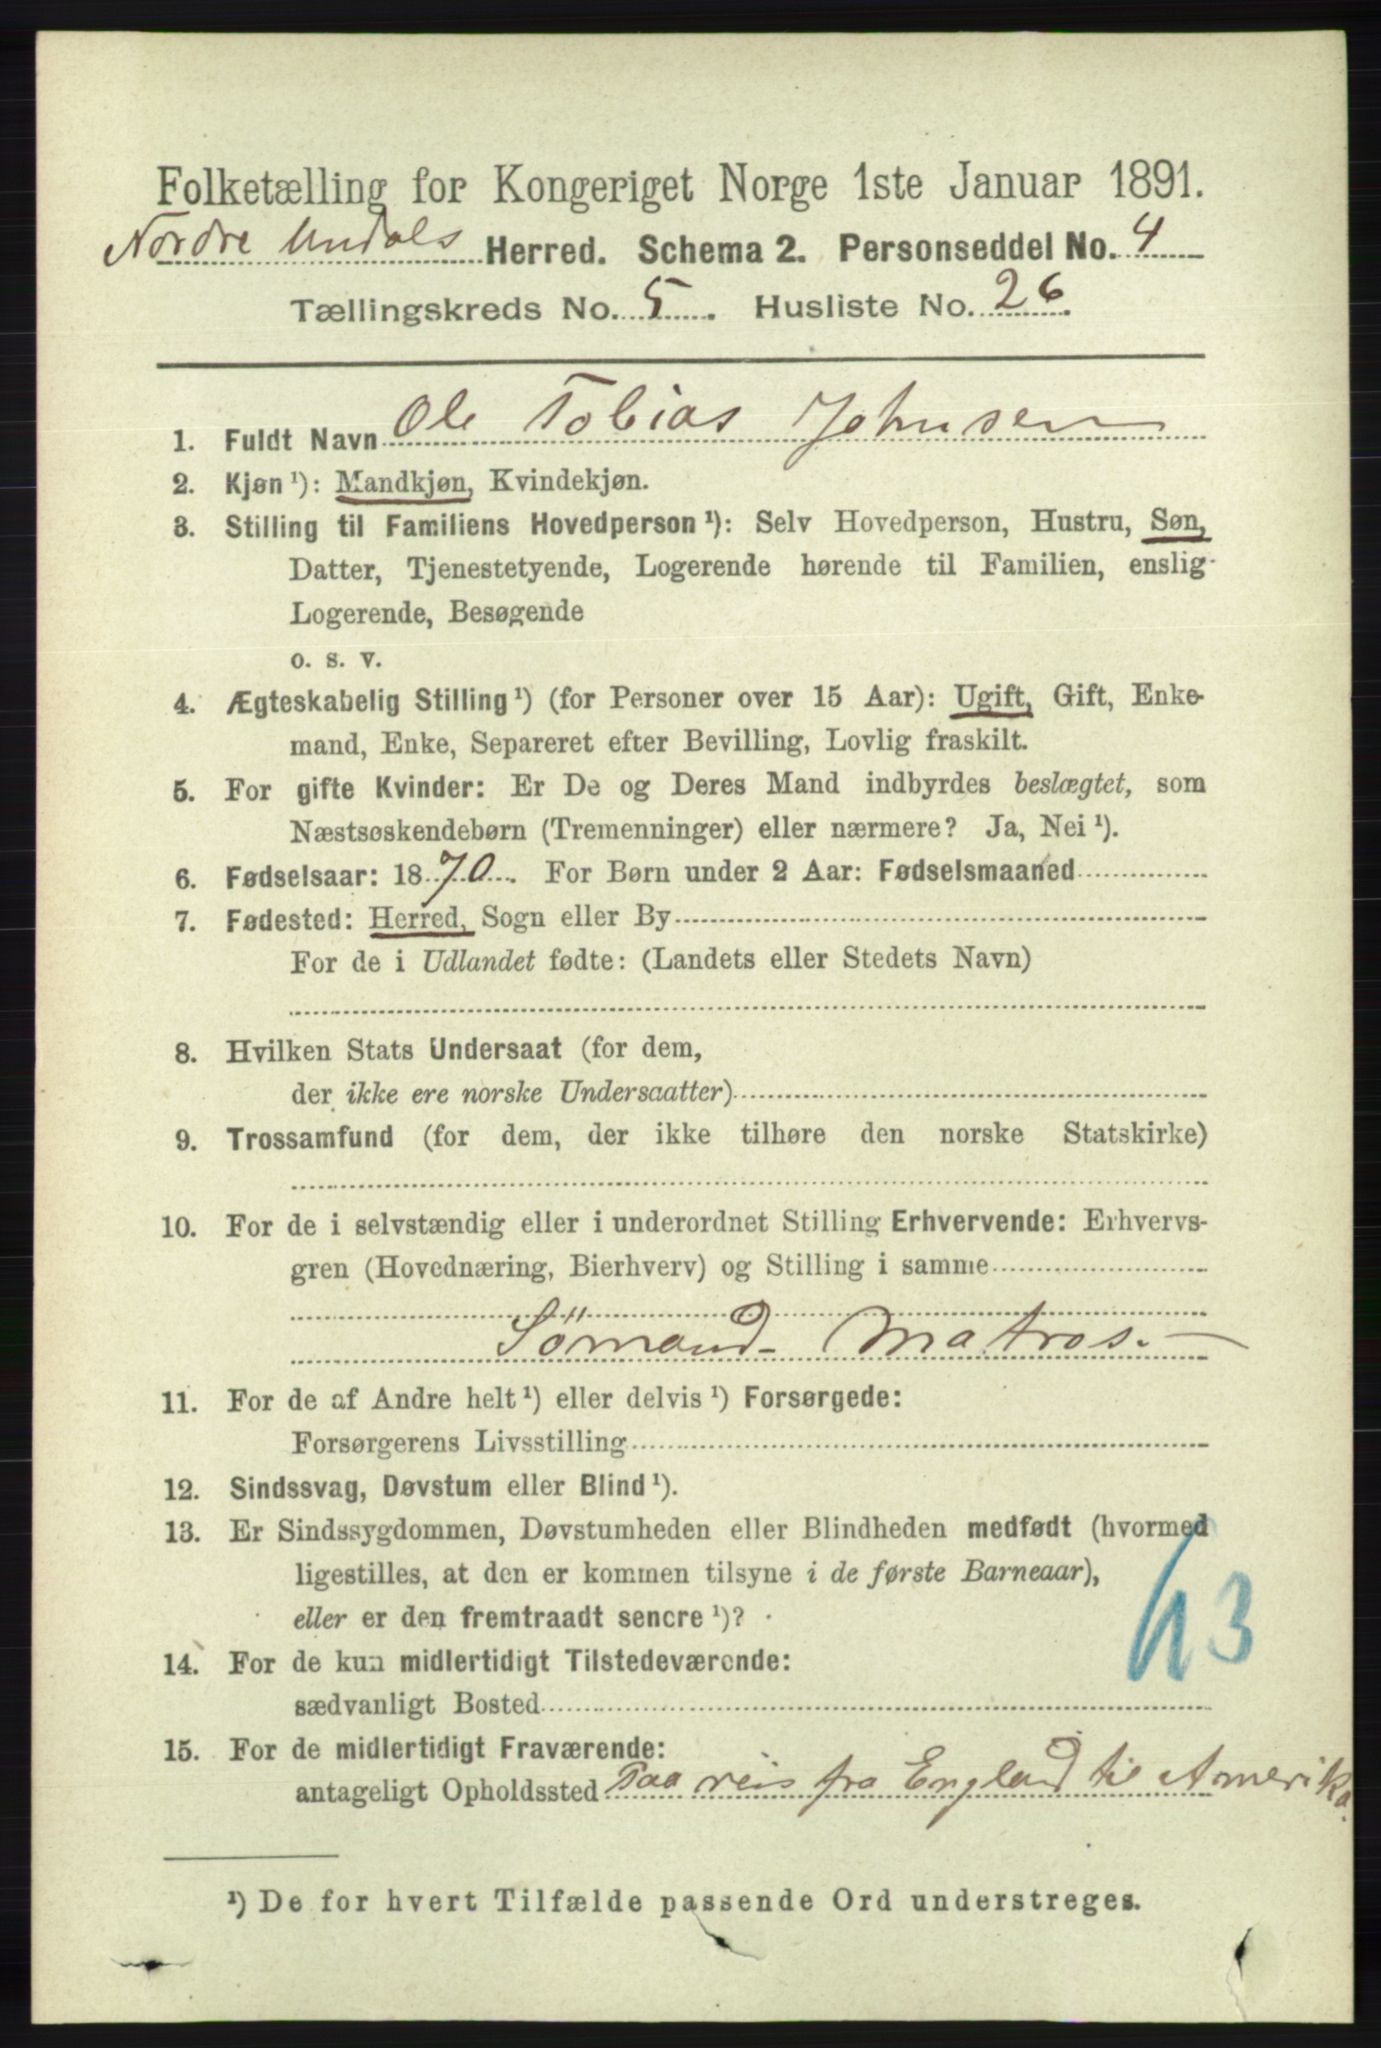 Folketælling for Kongeriget Norge 1ste Januar 1891.
Nordre Undals Herred. Schema 2. Personseddel No. 4
Tællingskreds No. 5. Husliste No. 26.
1. Fuldt Navn Ole Tobias Johnsen
2. Kjøn ¹): Mandkjøn, Kvindekjøn.
3. Stilling til Familiens Hovedperson ¹): Selv Hovedperson, Hustru, Søn,
Datter, Tjenestetyende, Logerende hørende til Familien, enslig
Logerende, Besøgende
o. s. v.
4. Ægteskabelig Stilling ¹) (for Personer over 15 Aar): Ugift, Gift, Enke-
mand, Enke, Separeret efter Bevilling, Lovlig fraskilt.
5. For gifte Kvinder: Er De og Deres Mand indbyrdes beslægtet, som
Næstsøskendebørn (Tremenninger) eller nærmere? Ja, Nei ¹).
6. Fødselsaar: 1870. For Børn under 2 Aar: Fødselsmaaned
7. Fødested: Herred, Sogn eller By
For de i Udlandet fødte: (Landets eller Stedets Navn)
8. Hvilken Stats Undersaat (for dem,
der ikke ere norske Undersaatter)
9. Trossamfund (for dem, der ikke tilhøre den norske Statskirke)
10. For de i selvstændig eller i underordnet Stilling Erhvervende: Erhvervs-
gren (Hovednæring, Bierhverv) og Stilling i samme
Sömand - Matros. -
11. For de af Andre helt ¹) eller delvis ¹) Forsørgede:
Forsørgerens Livsstilling
12. Sindssvag, Døvstum eller Blind ¹).
13. Er Sindssygdommen, Døvstumheden eller Blindheden medfødt (hvormed
ligestilles, at den er kommen tilsyne i de første Barneaar),
eller er den fremtraadt senere ¹)?
63
14. For de kun midlertidigt Tilstedeværende:
sædvanligt Bosted
15. For de midlertidigt Fraværende:
antageligt Opholdssted Paa reis fra England til Amerika.
¹) De for hvert Tilfælde passende Ord understreges.